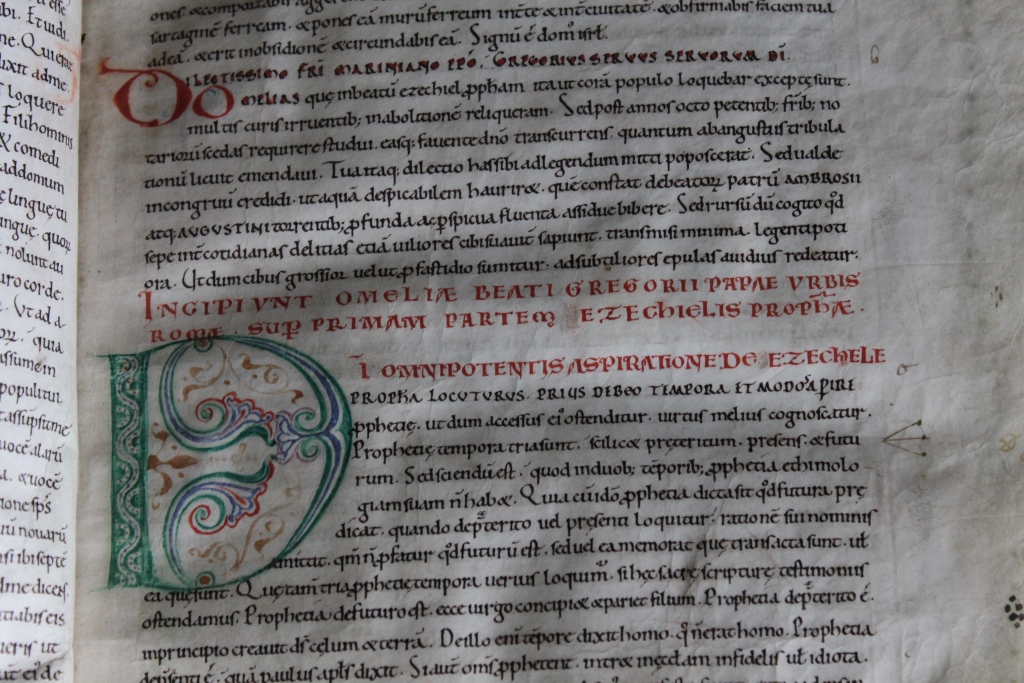 esse
bi. Et uidi.
ne. Qui erat
dixit ad me.
loquere
Fili hominis
& comedi
ad domum
linguę tu
linguę. quoꝝ
nolunt au
duro corde.
Vt ad a
quia
assumem
populi tui.
& assūpsit me
uocē alarū
& uocē
tione sp̄s
rū nouarū
si ibi septē
ad me dicens.
tiabis eis
ueris ut
ei de
ones & comportabis
sartaginē ferream. & pones eā murū ferreum int̄ te & int̄ ciuitatē. & obfirmabis faciem tuā
ad eā. & erit in obsidionē & circundabis eā. Signū ē domui isrl̄.
DILECTISSIMO FRI MARINIANO EPO. GREGORIUS SERVUS SERVORUM DI.
OMELIAS quę in beatū ezechiel ꝓpham ita ut corā populo loquebar exceptę sunt.
multis curis irruentib; in abolitionē reliqueram. Sed post annos octo petentib; frib; no
tarioꝝ scedas requirere studui. easq; fauente dn̄o transcurrens. quantum ab angustiis tribula
tionū licuit emendaui. Tua itaq; dilectio has sibi ad legendum mitti poposcerat. Sed ualde
incongruū credidi. ut aquā despicabilem hauriret. quę constat de beatoꝝ patrū AMBROSII
atq; AUGUSTINI torrentib; ꝓfunda ac ꝑspicua fluenta assidue bibere. Sed rursū dū cogito qd̄
sepe int̄ cotidianas delitias etiā uiliores cibi suauit̄ sapiunt. transmisi minima. legenti poti
ora. Vt dum cibus grossior uelut ꝓ fastidio sumitur. ad subtiliores epulas auidius redeatur.
INCIPIUNT OMELIÆ BEATI GREGORII PAPAE URBIS
ROMÆ. SUP PRIMAM PARTEM EZECHIELIS PROPHÆ.
DI OMNIPOTENTIS ASPIRATIONE DE EZECHELE
PROPHA LOCUTURUS. PRIUS DEBEO TEMPORA ET MODOS APIRE
ꝓphetię. ut dum accessus ei' ostenditur. uirtus melius cognoscatur.
Prophetię tempora tria sunt. scilic& pręteritum. presens. & futu
rum. Sed sciendū est. quod in duob; tēporib; ꝓphetia ethimolo
giam suam n̄ hab&. Quia cū ido ꝓphetia dicta sit qd̄ futura prę
dicat. quando de p̄terito uel pręsenti loquitur. rationē sui nominis
amittit. qm̄ n̄ ꝓfatur qd̄ futurū est. sed uel ea memorat quę transacta sunt. ul̄
ea quę sunt. Quę tam̄ tria ꝓphetię tempora uerius loquim̄. si hęc sacrę scripturę testimoniis
ostendamus. Prophetia de futuro est. ecce uirgo concipi& & pariet filium. Prophetia de p̄terito ē.
in principio creauit ds̄ cęlum & terrā. De illo eni tēpore dixit homo. q̊ n̄ erat homo. Prophetia
de p̄senti ē. quā paulus apls̄ dixit. Si aut̄ oms̄ ꝓphetent. intr& inquit aut̄ infidelis ul̄ idiota.